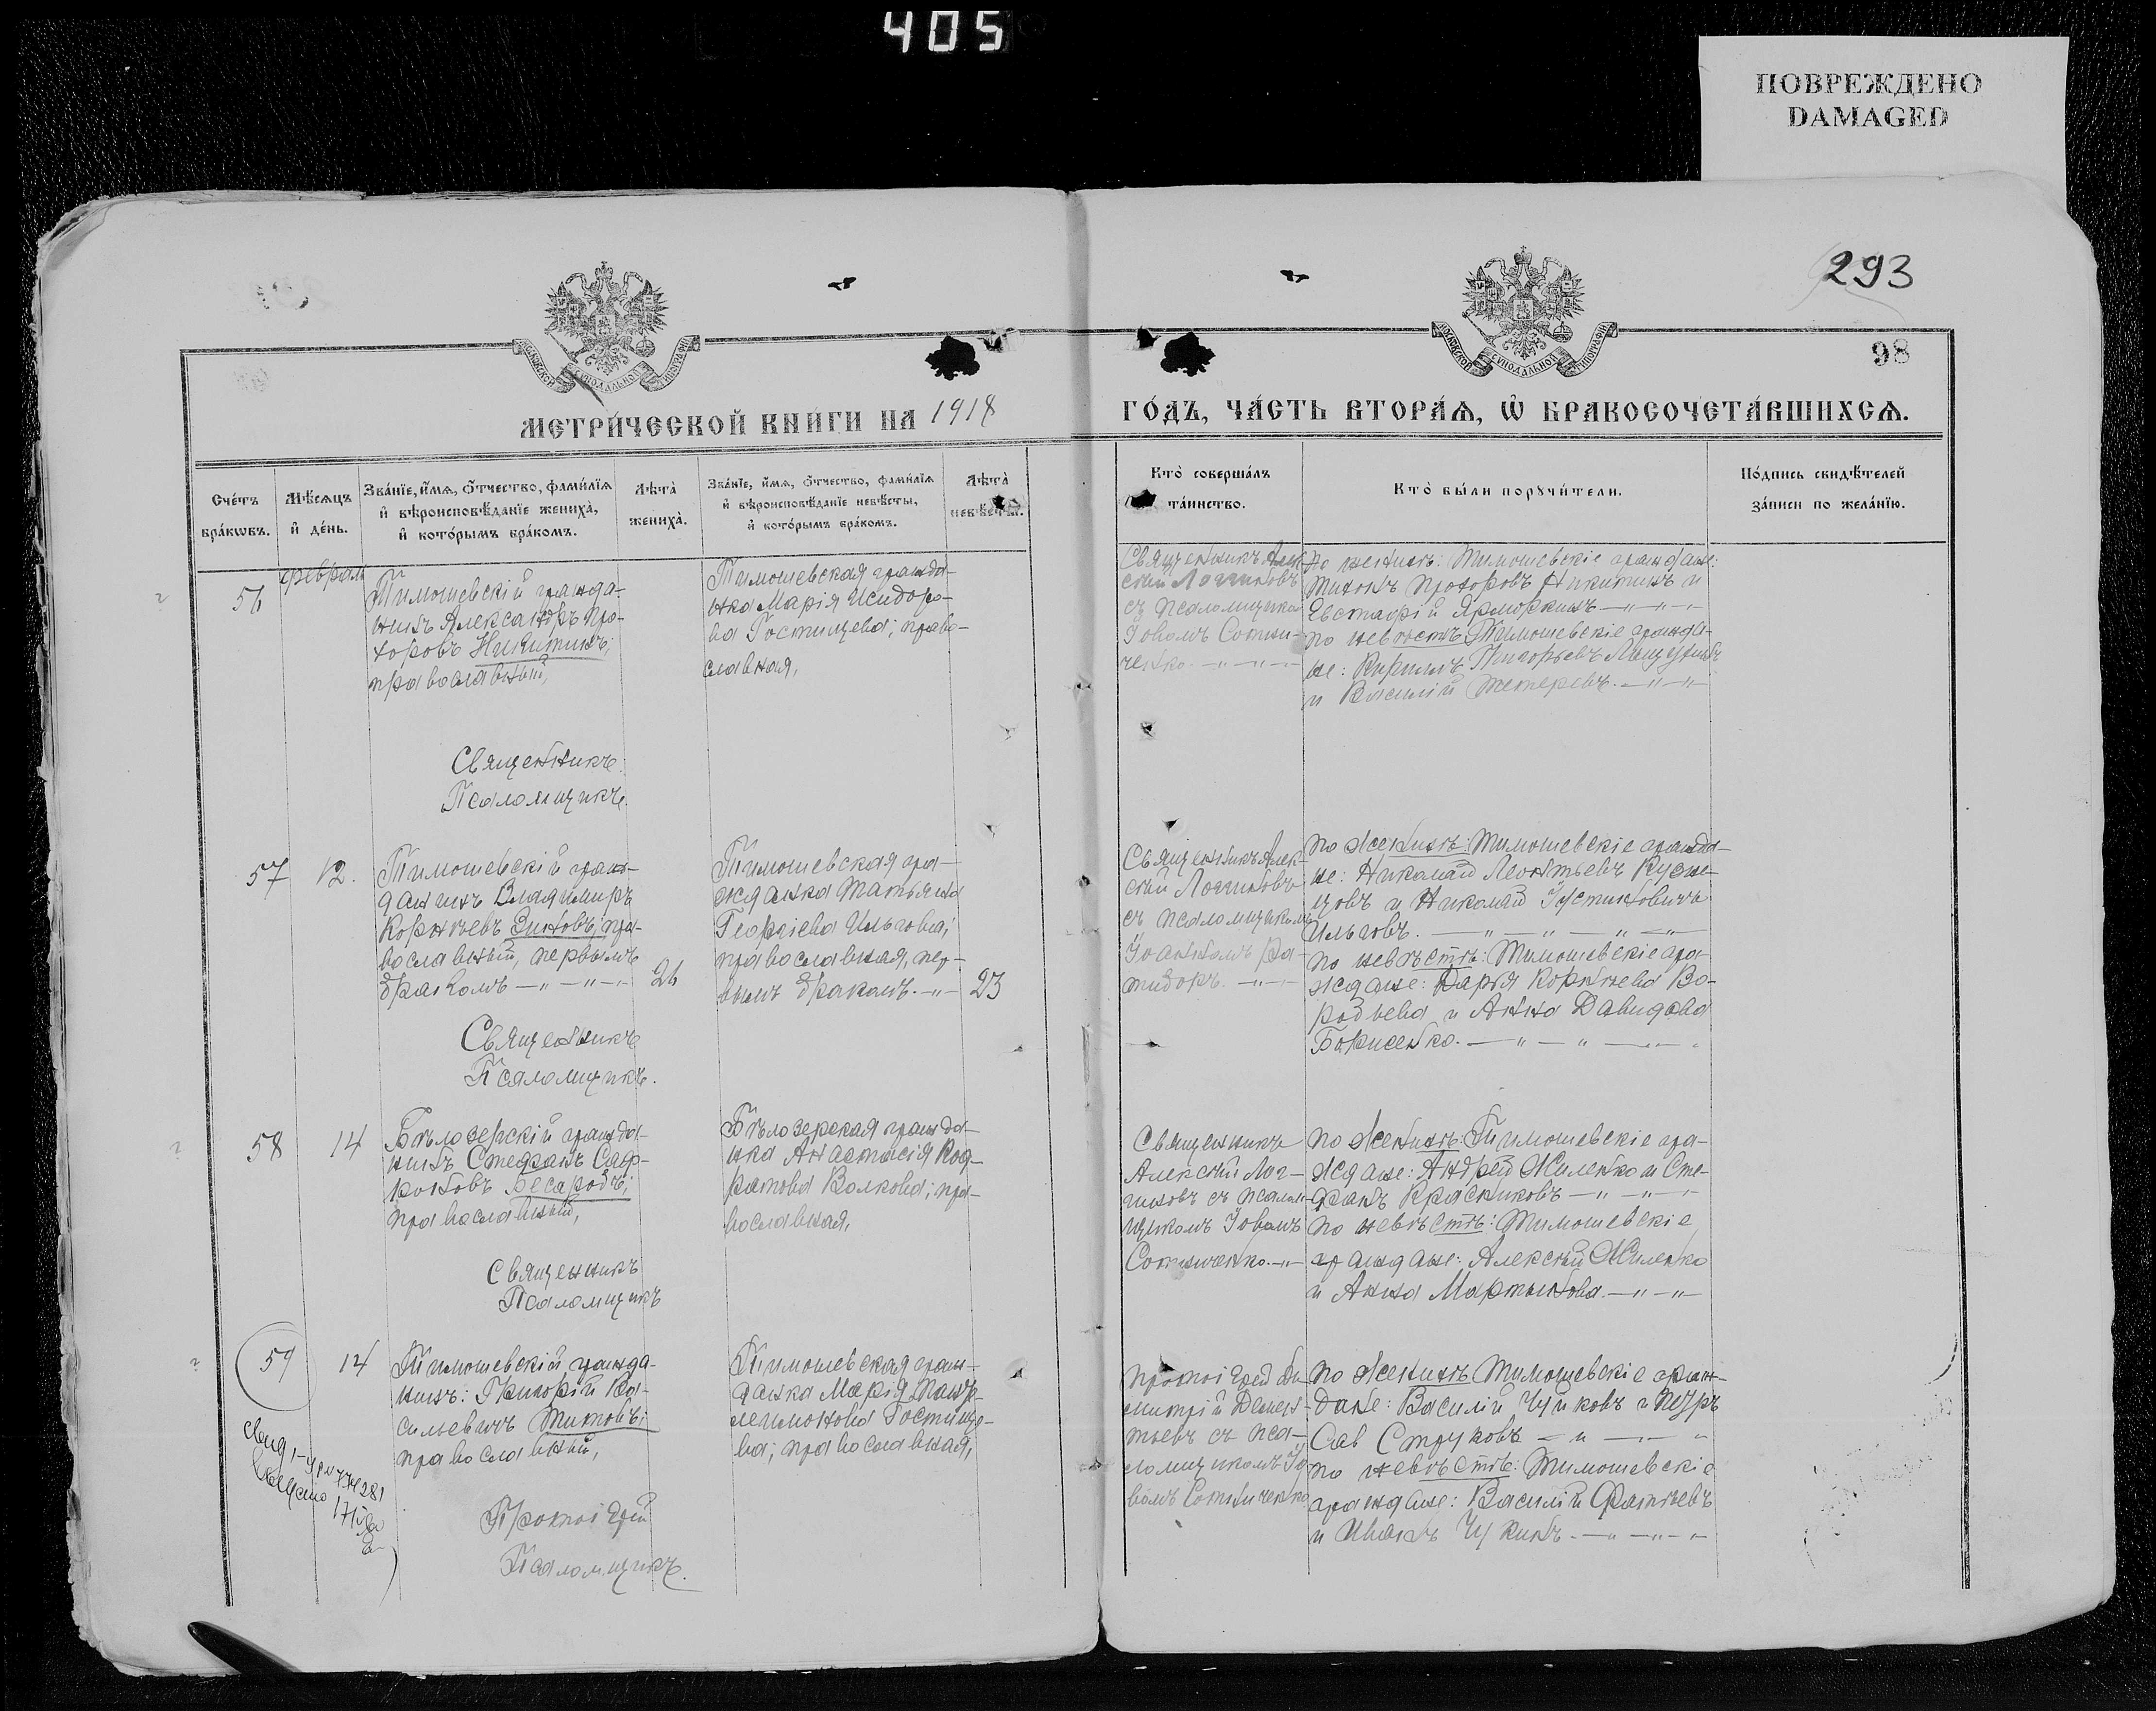 405
ПОВРЕЖДЕНО
DAMAGED
293
98
МОСКОВСКОЙ СУНОДАЛЬНОЙ ТИПОГРАФІИ
МОСКОВСКОЙ СУНОДАЛЬНОЙ ТИПОГРАФІИ
МЕТРИ́ЧЕСКОЙ КНИ́ГИ НА 1918 ГО́ДЪ, ЧА́СТЬ ВТОРА́Ѧ, Ѡ҆ БРАКОСОЧЕТА́ВШИХСѦ.
Сче́тъ
бра́кѡвъ.
Мѣ́сѧцъ
и҆ де́нь.
Зва́нїе, и҆́мѧ, ѻ҆́тчество, фами́лїѧ
и҆ вѣроисповѣ́данїе жениха̀,
и҆ кото́рымъ бра́комъ.
Лѣта̀
жениха̀.
Зва́нїе, и҆́мѧ, ѻ҆́тчество, фами́лїѧ
и҆ вѣроисповѣ́данїе невѣ́сты,
и҆ кото́рымъ бра́комъ.
Лѣта̀
невѣ́сты.
Кто̀ соверша́лъ
та́инство.
Кто̀ бы́ли порꙋчи́тели.
По́дпись свидѣ́телей
за́писи по жела́нїю.
56
февраль
Тимошевскій гражда-
нинъ Александръ Про-
хоровъ Никитинъ;
православный,
Священникъ:
Псаломщикъ.
Тимошевская гражда-
нка Марія Исидоро-
ва Гостищева; право-
славная,
Священникъ Алек
сѣй Логгиновъ
съ псаломщикомъ
Іовомъ Сотни-
ченко. —"—"—
По женихѣ: Тимошевскіе граждане:
Тихонъ Прохоровъ Никитинъ и
Евстафій Ярморкинъ —"—"—
по невѣстѣ Тимошевскіе гражда-
не: Кириллъ Григорьевъ
и Василій Тетеревъ. —"—"
57
12.
Тимошевскій граж-
данинъ Владимиръ
Корнѣевъ Зиновъ; пра-
вославный, первымъ
бракомъ —"—"—
26
Священникъ
Псаломщикъ.
Тимошевская гра-
жданка Татьяна
Георгіева Ильгова;
православная, пер-
вымъ бракомъ. —"—
23
Священникъ Алек-
сѣй Логгиновъ
съ псаломщикомъ
Іоанномъ Ра-
—"—
По женихѣ: Тимошевскіе гражда-
не: Николай Леонтьевъ Кузне-
цовъ и Николай Іустиновичъ
Ильговъ. —"—"—"—
по невѣстѣ: Тимошевскіе гра-
ждане: Дарья Корнѣева Во-
робьева и Анна Давидова
Борисенко. —"—"—
58
14
Бѣлозерскій гражда-
нинъ Стефанъ Саф-
роновъ Бесарабъ;
православный,
Священникъ
Псаломщикъ
Бѣлозерская гражда-
нка Анастасія Код-
ратова Волкова; пра-
вославная,
Священникъ
Алексѣй Лог-
гиновъ съ псалом-
щикомъ Іовомъ
Сотниченко. —"—
По женихѣ: Тимошевскіе гра-
ждане: Андрей Жиленко и Сте-
фанъ Красниковъ —"—"—
По невѣстѣ: Тимошевскіе
граждане: Алексѣй Жиленко
и Анна Мартынова. —"—"
59
14
Тимошевскій гражда-
нинъ: Григорій Ва-
сильевичъ Титовъ;
православный,
Протоіерей
Псаломщикъ.
Тимошевская граж-
данка Марія Панте-
леимонова Гостище-
ва; православная,
Протоіерей Ди-
митрій Демен-
тьевъ съ пса-
ломщикомъ Іо-
вомъ Сотниченко
По женихѣ Тимошевскіе граж-
дане: Василій Чуйковъ и Петръ
Сав Струковъ —"—"
По невѣстѣ: Тимошевскіе
граждане: Василій Фатѣевъ
и Иванъ Щукинъ. —"—"—